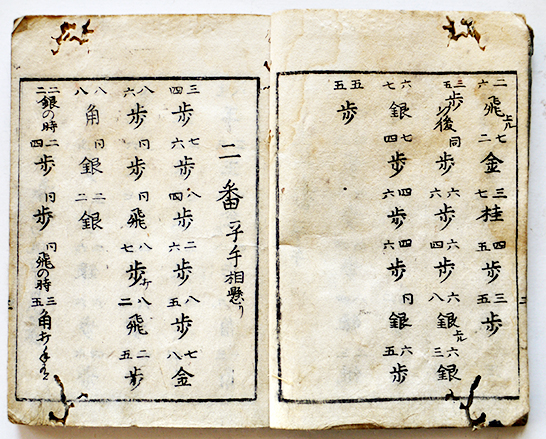 二六飛上ル 七二金 三七桂 四五歩 三五歩
三五歩 後 同歩 六六歩 六四歩 六八銀上ル 六三銀
六七銀 七四歩 四六歩 四六歩 同銀 六五歩
五五歩
二番 平手相懸り
三四歩 七六歩 八四歩 二六歩 八五歩 七八金
八六歩 同歩 同飛 八七歩打 八二飛 二五歩
八八角 同銀 二二銀
二二銀の時 二四歩 同歩 同飛の時 三五角打手有